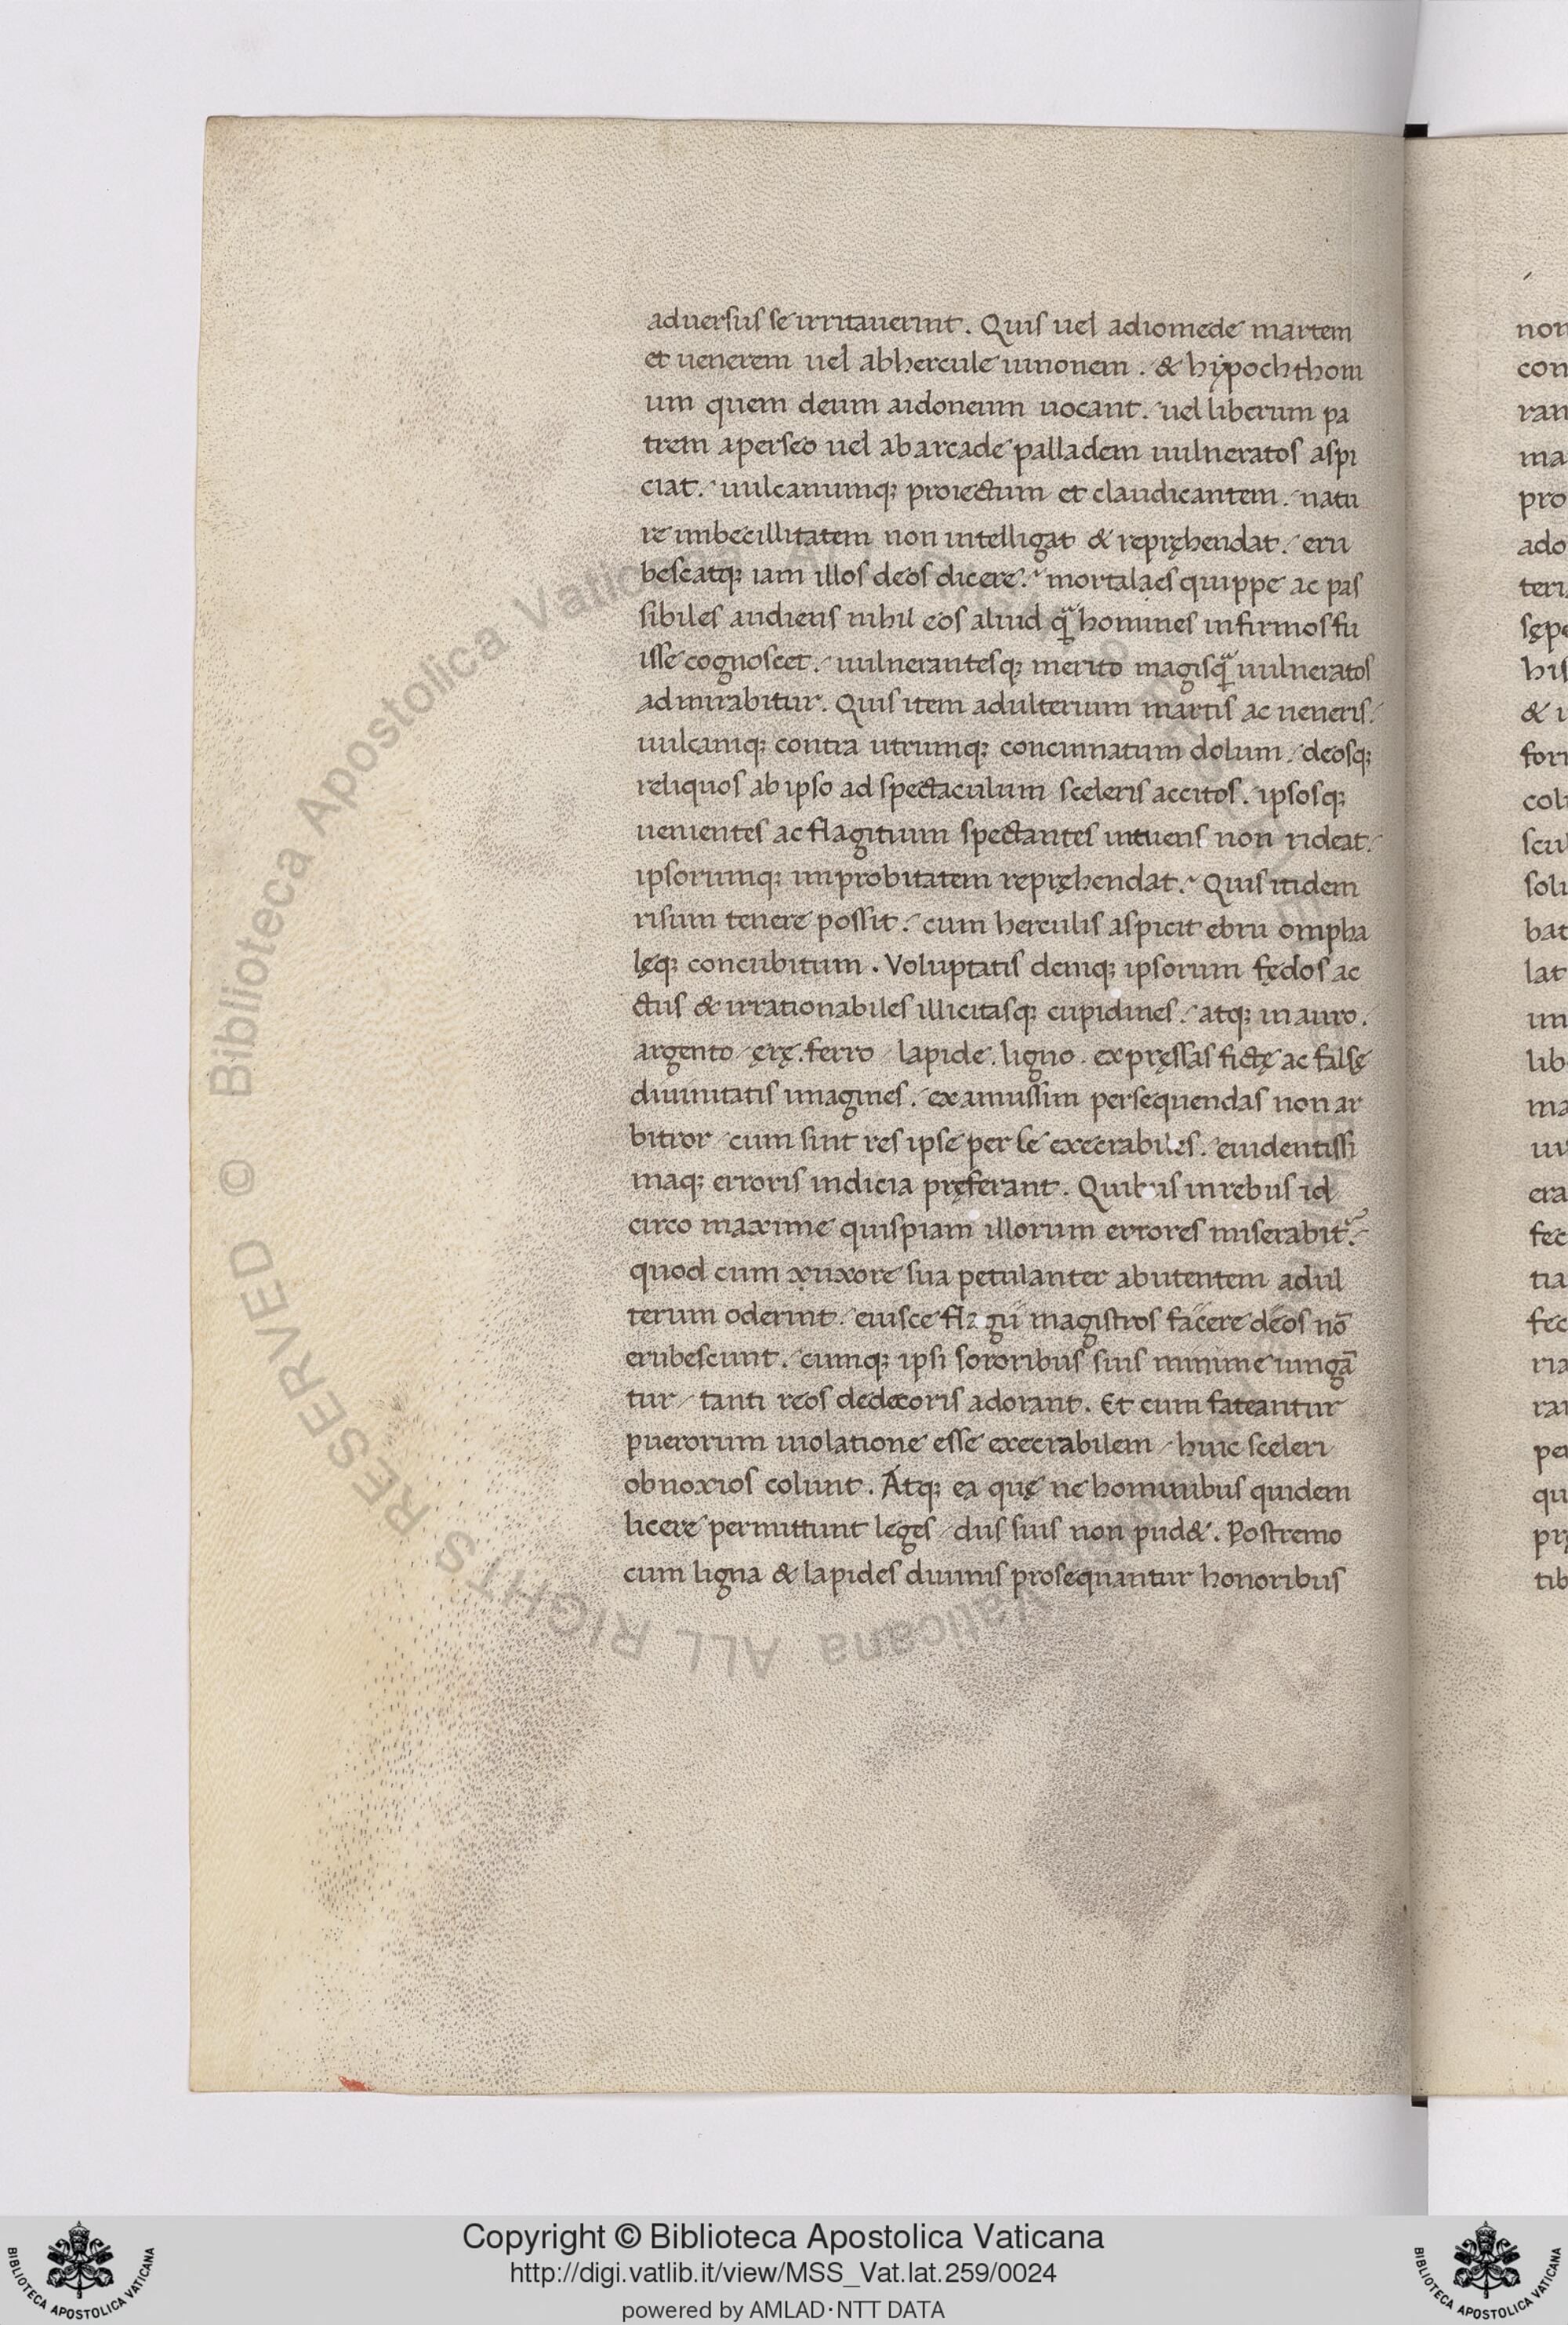 aduersus se irritauerint. Quis uel adiomede martem
et uenerem uel abhercule iunonem. & hypochthoni
um quem deum aidoneum uocant. uel liberum pa
trem aperseo uel abarcade palladem uulneratos aspi
ciat. uulcanumq; proiectum et claudicantem. natu
re imbecillitatem non intelligat & repręhendat. eru
bescatq; iam illos deos dicere. mortalaes quippe ac pas
sibiles audiens nihil eos aliud quã homines infirmos fu
isse cognoscet. uulnerantesq; merito magisquã uulneratos
admirabitur. Quis item adulterium martis ac ueneris.
uulcaniq; contra utrumq; concinnatum dolum. deosq;
reliquos ab ipso ad spectaculum sceleris accitos. ipsosq;
uenientes ac flagitium spectantes intuens non rideat.
ipsorumq; improbitatem repręhendat. Quis itidem
risum tenere possit. cum herculis aspicit ebrii ompha
lęq; concubitum. Voluptatis deniq; ipsorum fędos ac
ctus & irrationabiles illicitasq; cupidines. atq; in auro.
argento ęrę. ferro lapide. ligno. expręssas fictę ac falsę
diuinitatis imagines. examussim persequendas non ar
bitror cum sint res ipse per se execrabiles. euidentissi
maq; erroris indicia pręferant. Quibus inrebus id
circo maxime quispiam illorum errores miserabit.
quod cum xuxore sua petulanter abutentem adul
terum oderint. eiusce flagii magistros facere deos nō
erubescunt. cumq; ipsi sororibus suis minime iungā
tur tanti reos dedecoris adorant. Et cum fateantur
puerorum uiolatione esse execrabilem huic sceleri
obnoxios colunt. Atq; ea quę ne hominibus quidem
licere permittunt leges diis suis non pud&. Postremo
cum ligna & lapides diuinis prosequantur honoribus
Copyright © Biblioteca Apostolica Vaticana
http://digi.vatlib.it/view/MSS_Vat.lat.259/0024
powered by AMLAD·NTT DATA